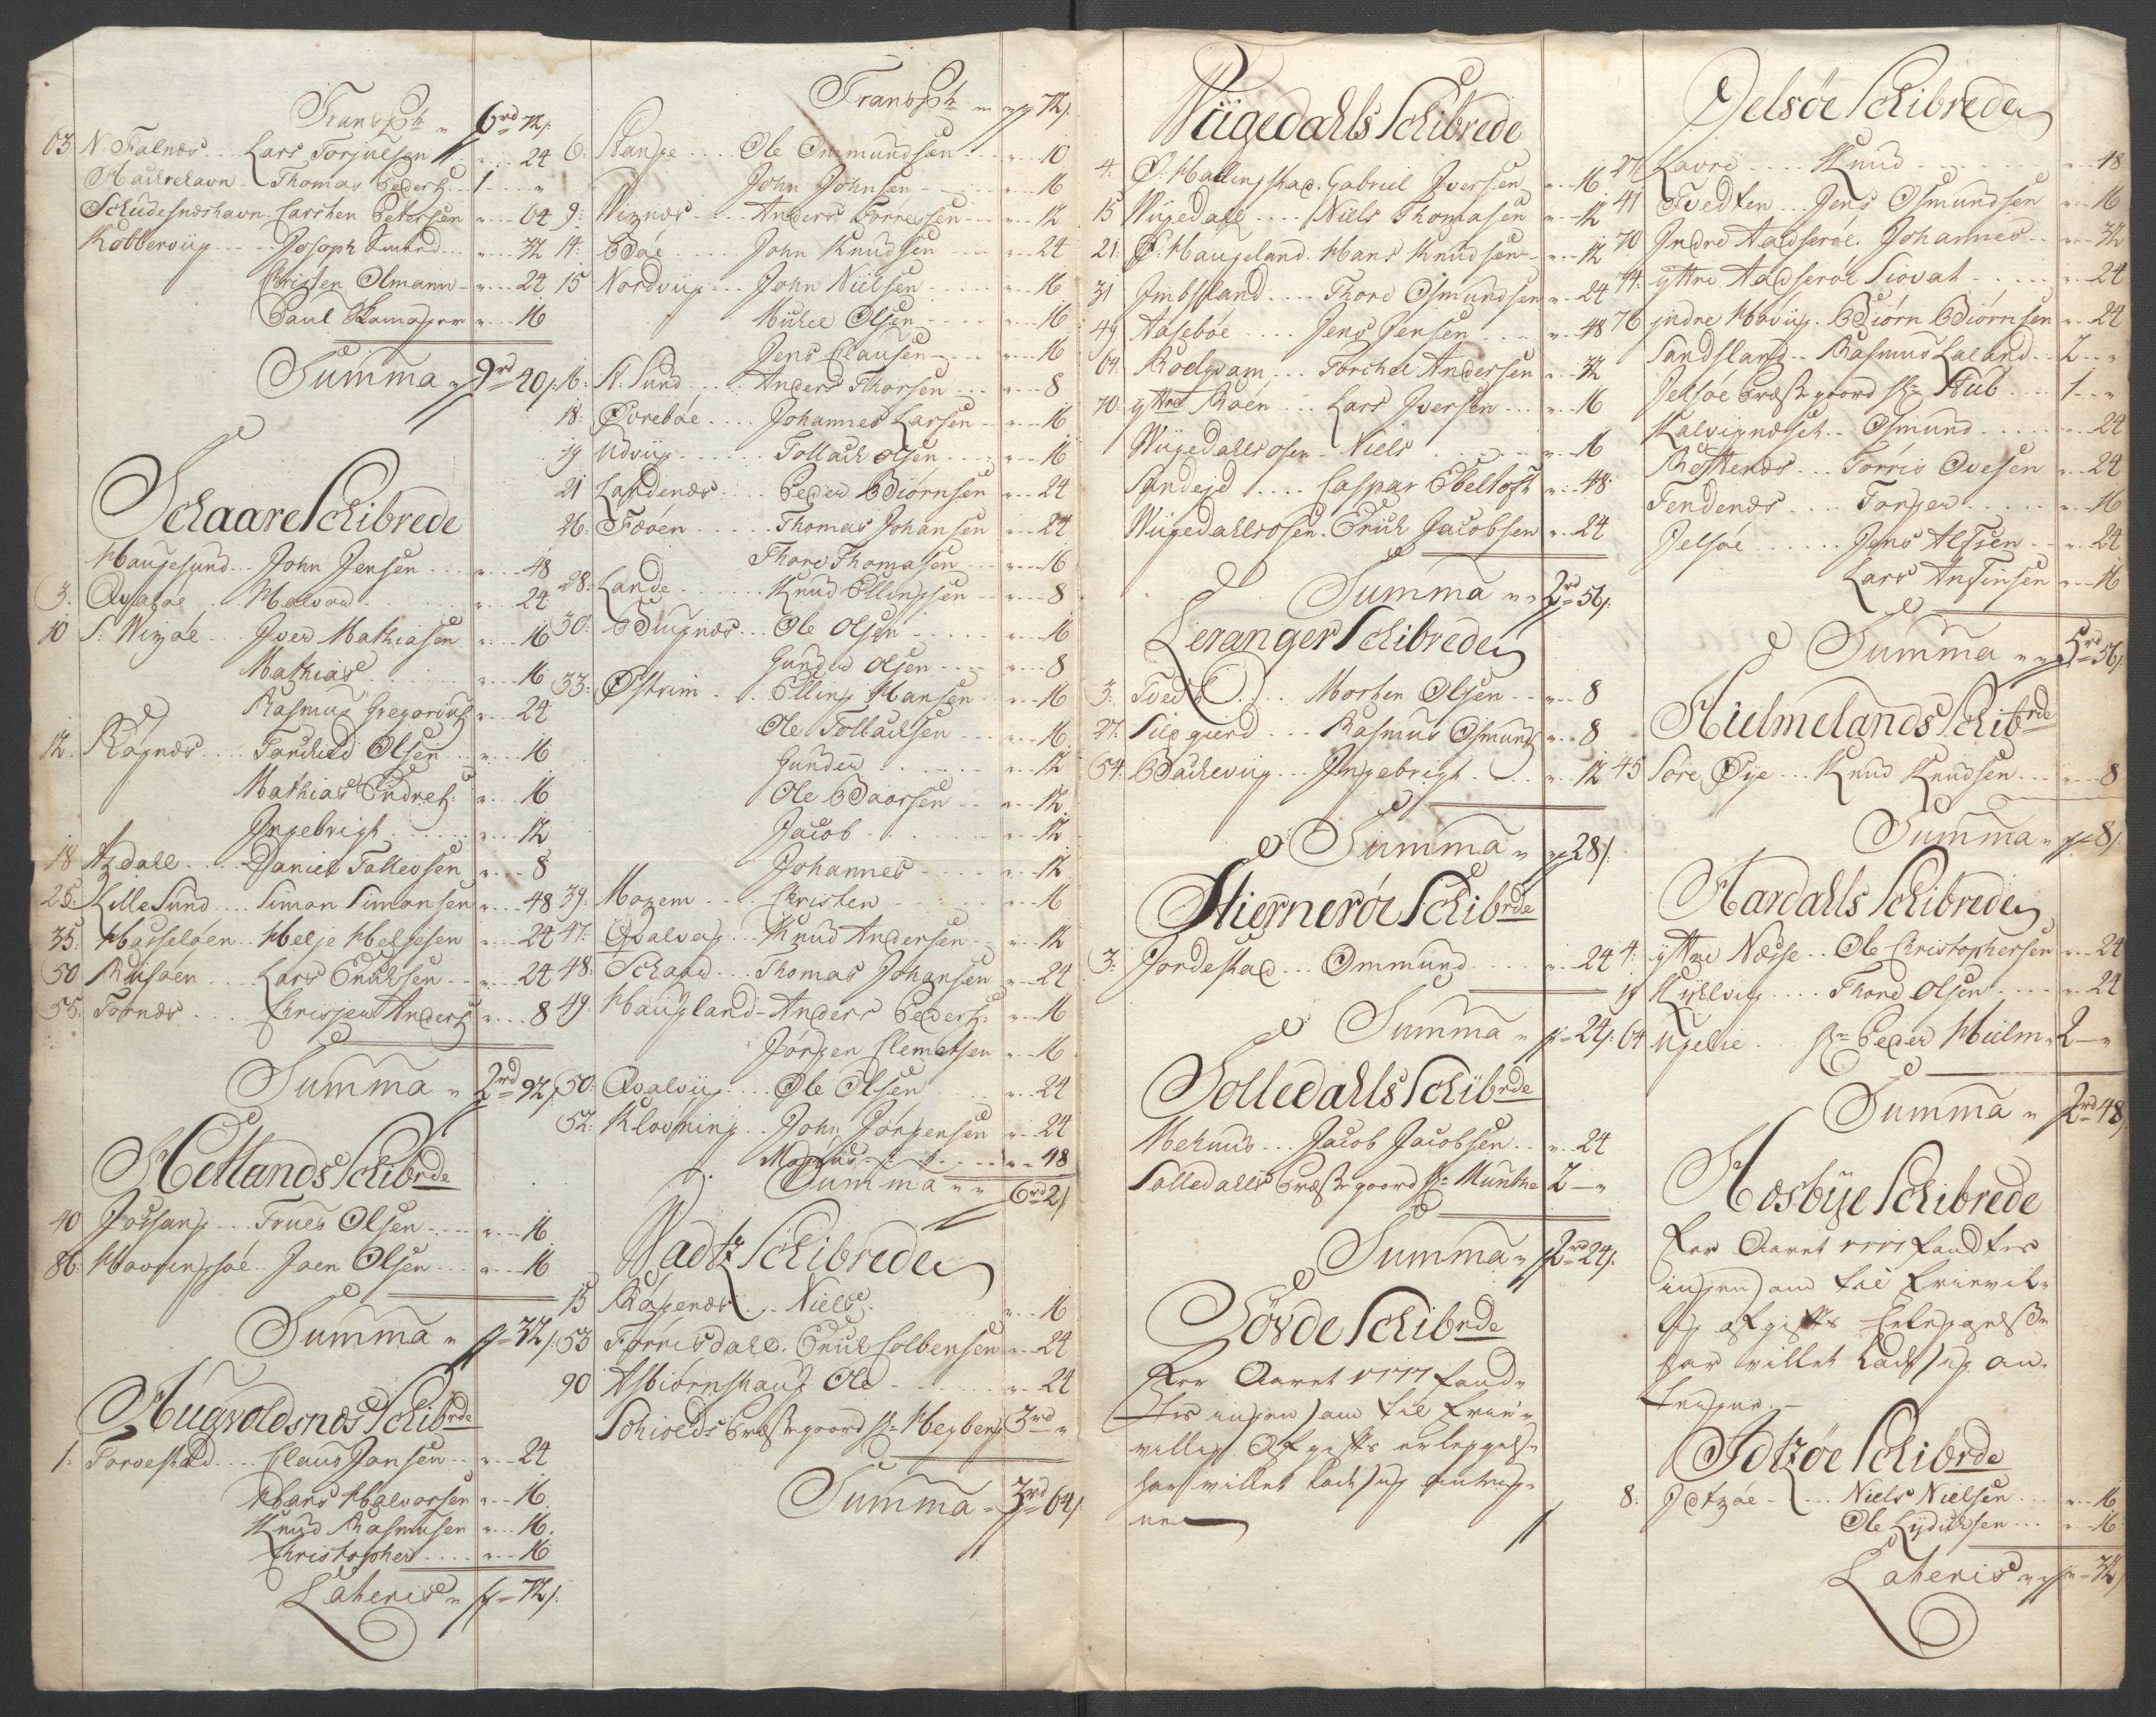 Transpt „ 6rd 72s:
63 N: Falnæs . . . Lars Torjulsen . . „ . . 24
Mackehavn . Thomas Peders: . . 1 . . „
Schudesnæshavn . Carsten Petersen „ . . 64
Kobberviig . . . . Joseph Smed . . . „ . . 32
Christen Olmann . . „ . . 24
Paul Skomager „ . . 16
Summa „ 9rd 40s:
Schaare Schibrede
Haugesund . . John Jensen . . . „ . . 48
3. Qvaløe . . Halvor . . . „ . . 24
10 S: Wixøe . . . Iver Mathiasen „ . . 16
Mathias . . . „ . . 16
Rasmus Gregorius: „ . . 24
12. Røgnæs . . . Torchild Olsen . . „ . . 16
Mathias Endres: „ . . 16
Ingebrigt . . . „ . . 12
18 Axdall . . . Daniel Tallevsen „ . . 8
25: Lille Sund . . . Simon Simonsen „ . . 48
35: Hasseløen . . Helje Heljesen „ . . 24
50 Røfsøen . . . Lars Erichsen . . „ . . 24
55. Tornæs . . . Christen Anders: „ . . 8
Summa „ 2rd 92s:
Hetlands Schibrde
40 Jøssang . . . Troels Olsen . . . „ . . 16
86. Høvringsøe . . Joen Olsen . . . „ . . 16
Summa „ „ 32s:
Augvoldsnæs Schibrde
1. Torvestad . . . Claus Jansen . . „ . . 24
Hans Halvorsen „ . . 16.
Knud Rasmusen „ . . 16.
Christopher . . . „ . . 16
Lateris „ „ 72s:
Transpt „ „ 72s:
6: Stange . . . . Ole Ommundsen . . . „ . . 10
John Johnsen . . . „ . . 16
9: Wixnæs . . . Anders Torresen . . „ . . 12
14. Bøe . . . John Knudsen . . . „ . . 24
15 Nordviig . . . John Nielsen . . . „ . . 16
Michel Olsen . . . „ . . 16
Jens Clausen . . . „ . . 16
16: N: Sund . . . Anders Thorsen . . . „ . . 8
18: Øvrebøe . . . . Johannes Larsen . . „ . . 16
19 Udviig . . . . . Tollach Olsen . . . „ . . 16
21 Landenæs . . . Peder Biørnsen „ . . 24
26. Fæøen . . . . . Thomas Johansen „ . . 24
Thore Thomasen . . „ . . 16
28: Lande . . . . . Knud Ellingsen . . „ . . 8
30: Buugnæs . . . Ole Olsen . . . „ . . 16
Gunder Olsen . . . „ . . 8
33: Østrim . . Elling Hansen . . „ . . 16
Ole Tollachsen . . „ . . 16
Gunder . . . „ . . 12
Ole Baarsen . . „ . . 12
Jacob . . . „ . . 12
Johannes . . . „ . . 12
39: Moxem . . . Christen . . . „ . . 16
47: Qvalvog . . . Knud Andersen . . „ . . 12
48: Schaar . . . Thomas Johansen „ . . 24
49: Haugland . Anders Peders: „ . . 16
Jørgen Clemetsen „ . . 16
50: Qvalviig . . . Ole Olsen . . . „ . . 24
52: Kløvning . . John Jørgensen „ . . 24
Marcus . . . „ . . 48
Summa „ „ 6rd 2s
Wadtz Schibreden
15 Røgenæs . . . Niels . . . „ . . 16
53 Torrisdall . Erich Colbensen „ . . 24
90 Asbiørnshaug Ole . . . „ . . 24
Schiolds Præstegaard Hr: Heyberg 3rd „
Summa „ 3rd 64s:
Wiigedahls Schibrede
4. S: Hallingstad . Gabriel Iversen „ . . 16
15 Wiigedall . . . . Niels Thomasen „ . . 12
21. S: Haugeland . Hans Knudsen . . „ . . 12
31 Imbsland . . . Thore Osmundsen „ . . 24
49. Aasebøe . . . Jens Jensen . . . „ . . 48
64. Rødgvam . . . Torchel Andersen „ . . 32
70: yttre Røen . . . Lars Iversen . . . „ . . 16
Wiigedahlsosen . Niels . . . „ . . 16
Sandeid . . . . Caspar Ebeltoft „ . . 48
Wiigedahlsosen . Erich Jacobsen „ . . 24
Summa „ „ 2rd 56s:
Leranger Schibreden
3. Tvedt . . . Morten Olsen . . „ . . 8
27. Siigierd . . . Rasmus Osmunds: „ . . 8
54: Bacheviig . . . Ingebrigt . . . „ . . 12
Summa „ „ 28s:
Stiernerøe Schibrde
3: Jordestad . . . Ommund . . . „ . . 24
Summa „ „ 24s:
Solledalls Schibrde
Mehuus . . . Jacob Jacobsen . . „ . . 24
Salledalls Præstegaard Hr: Munthe 2 „
Summa „ 2rd 24s:
Søvde Schibrde
For Aaret 1777 fand„
tes ingen som til Frie„
villig Afgifts erleggelse
har villet ladet sig antegne
Jelsøe Schibreden
27. Lavre . . . . Knud . . . „ . . 48
41 Tvedten . . . Jens Osmundsen „ . . 16
70 Indre Aadserøe . Johannes . . „ . . 32
74. yttre Aadserøe Siovat . . . „ . . 24
76 indre Høviig . Biørn Biørnsen „ . . 24
Sandsland . . Rasmus Laland . . 2 . . „
Jelsøe Præstegaard Hr: Stub . . . 1 . . „
Kalvignæset . . Osmund . . . . „ . . 24
Røstenæs . . . Torris Ovesen „ . . 24
Tendenæs . . . Torger . . . „ . . 16
Jelsøe . . . . . Jens Alfsen . . „ . . 24
Lars Anfinsen „ . . 16
Summa „ „ 5rd 56s:
Hielmelands Schibrde
45 Søre Øye . . . Knud Knudsen . . . „ . . 8
Summa „ „ 8s:
Aardahls Schibreden
4: yttre Næsse . . Ole Christophersen „ . . 24
19 Kyhlviig . . . . Thore Olsen . . . „ . . 24
64 Ugelie . . . Hr: Peder Hielm „ 2 . . „
Summa „ 2rd 48s
Hosbye Schibrede
For Aaret 1777 fandtes
ingen som til Frievil„
lig afgifts Erleggelse
har villet ladet sig an„
tegne.
Idtzøe Schibrde
8: Idtzøe . . . . Niels Nielsen . . . „ . . 16
Ole Lydichsen . . . „ . . 16
Lateris „ „ 32s